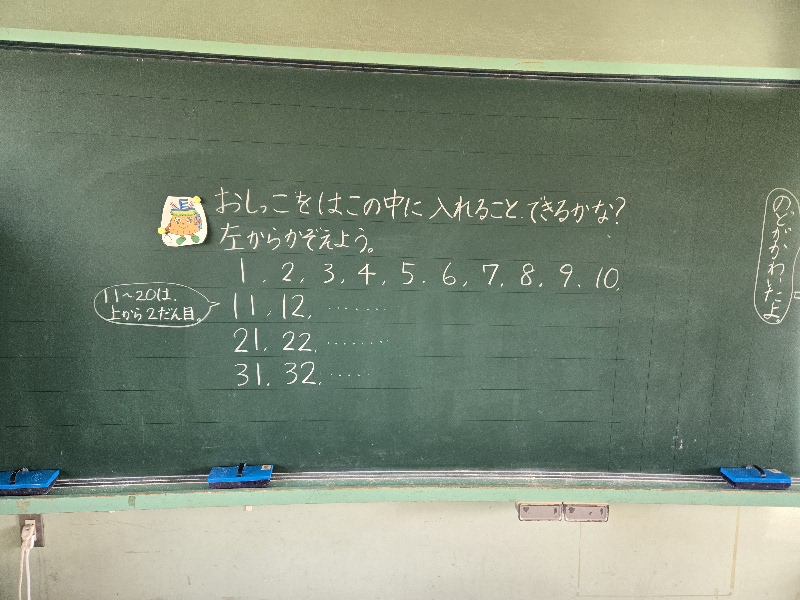 おしっこをはこの中に入れること、できるかな?
左からかぞえよう。
1、2、3、4、5、6、7、8、9、10、
11〜20は、
上から2だん目。
11、12、………
21、22、………
31、32、……
のどがかわいたよ。